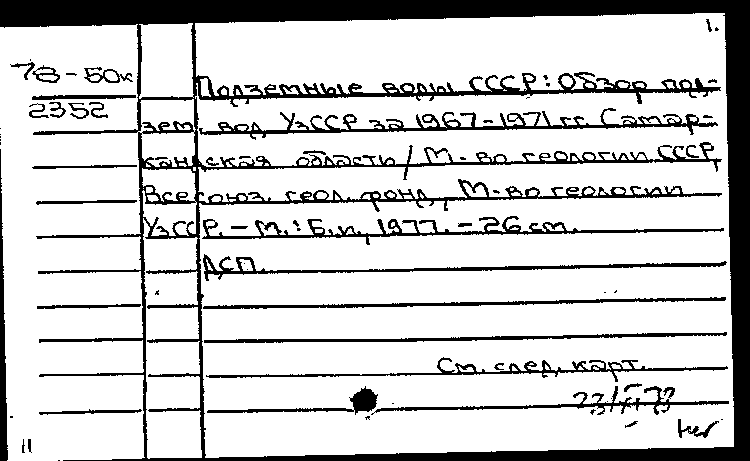 1.
78-50к
2352
Подземные воды СССР: Обзор под-
зем. вод УзССР за 1967-1971 гг. Самар-
кандская область / М-во геологии СССР,
Всесоюз. геол. фонд, М-во геологии
УзССР. - М.: Б.и., 1977. - 26 см.
ДСП.
См. след. карт.
11